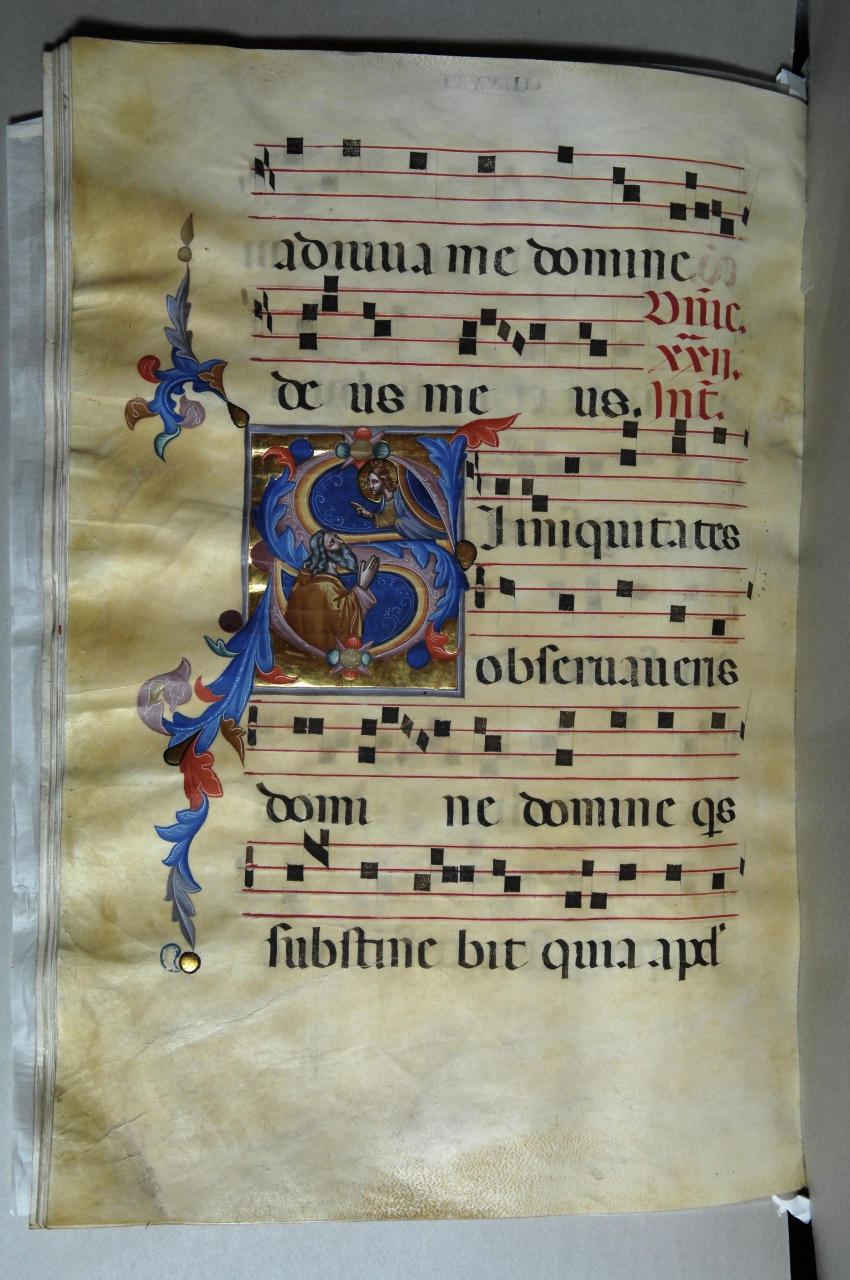 adiuua me domine
Dn̄ic.
xxij.
de us me us. Int̄.
S
I iniquitates
obseruaueris
domi ne domine q̄s
substine bit quia apd'